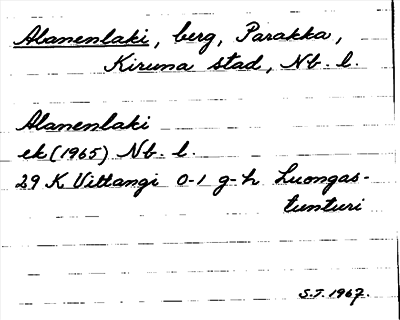 Alanenlaki, berg, Parakka,
Kiruna stad, Nb. l.
Alanenlaki
ek (1965) Nb. l.
29 K Vittangi 0-1 g-h Luongas-
tunturi
S.T. 1967.